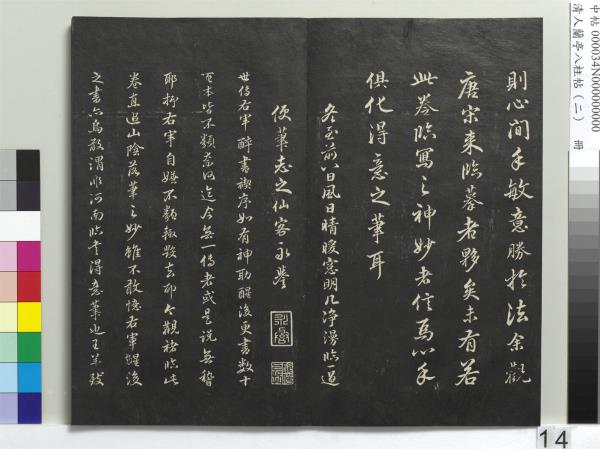 則心間手敏意勝於法余觀
唐宋來臨摹者夥矣未有若
此卷臨寫之神妙者信焉心手
俱化得意之筆耳
冬至前八日風日晴暖窓明几淨漫臨一過
便筆志之仙客永鎣
世傳右軍醉書禊序如有神助醒後更書數十
百本皆不類柰何迄今無一傳者或是説無稽
耶抑右軍自嫌不類輒毀去耶今觀褚臨此
卷直迫山陰落筆之妙雖不敢憶右軍醒後
之書亦烏敢謂非河南臨書得意筆也王羊跋
中帖 000034N000000000
清人蘭亭八柱帖（二） 冊
14